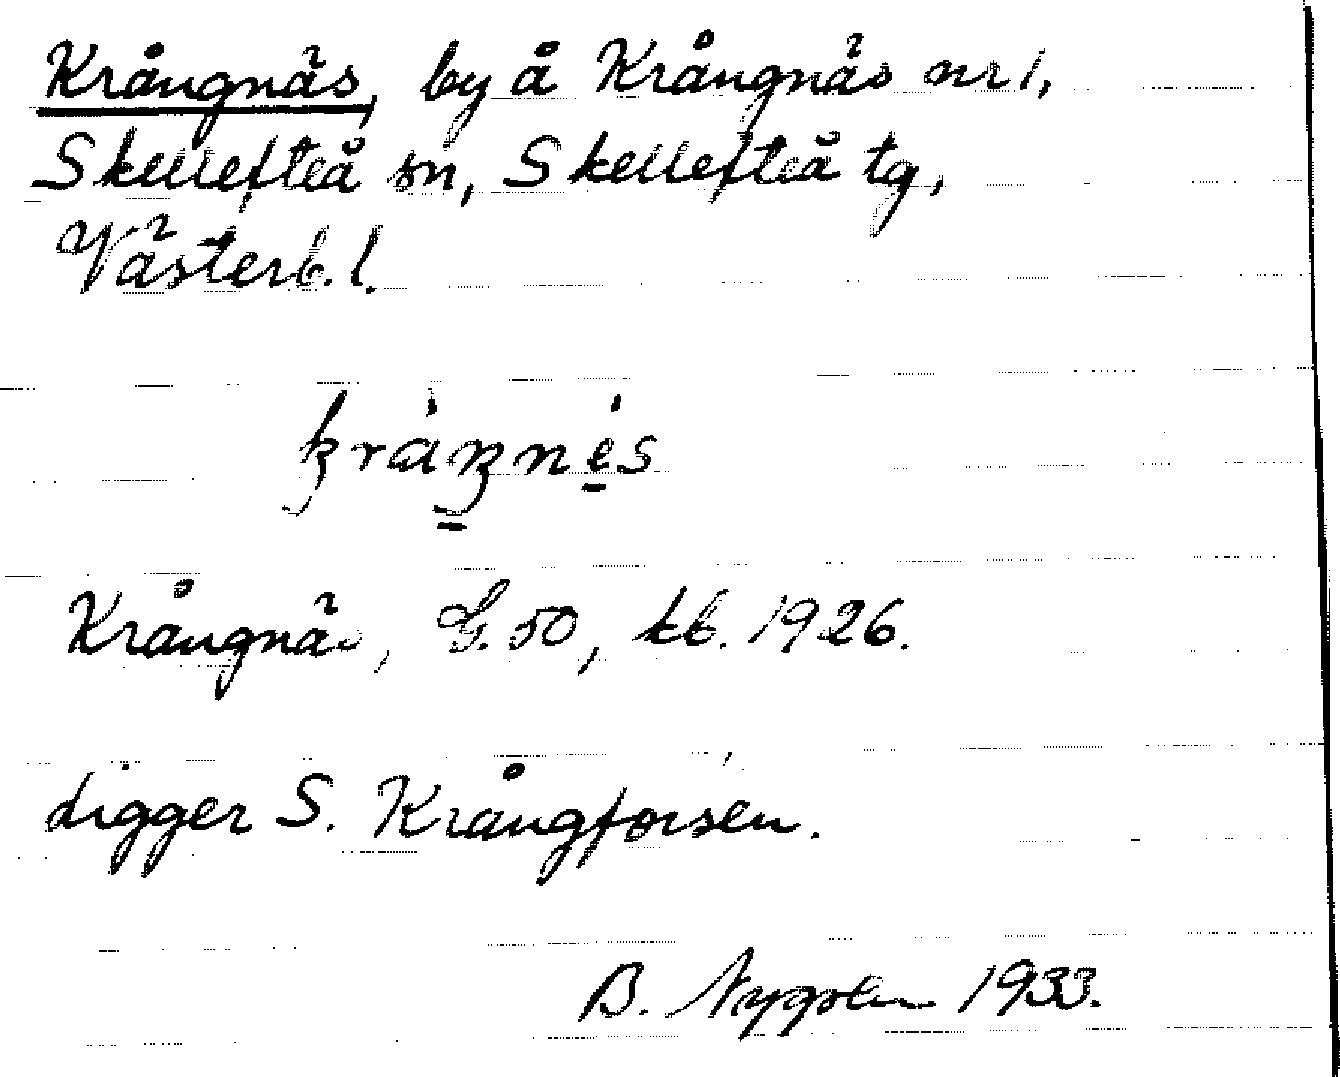 Krångnäs, by å Krångnäs nr 1,
Skellefteå sn, Skellefteå tg,
Västerb. l.
Krångnäs, G. 50, kb. 1926.
ligger S. Krångforsen.
B. 1933.